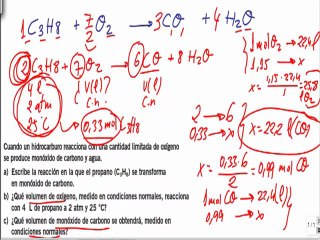 1C3H8 + 7/2 O2 → 3CO + 4H2O
2C3H8 + 7O2 → 6CO + 8H2O
4 l
2 atm
25ºC
V(l)
C.n.
V(l)
C.n.
0,33 mol C3H8
1 mol O2 → 22,4 l
1,15 → x
2 → 6
0,33 → x
x = 22,2 l CO
x = 0,33·6 / 2 = 0,99 mol CO
1 mol CO → 22,4 l
0,99 → x
Cuando un hidrocarburo reacciona con una cantidad limitada de oxígeno
se produce monóxido de carbono y agua.
a) Escribe la reacción en la que el propano (C3H8) se transforma
en monóxido de carbono.
b) ¿Qué volumen de oxígeno, medido en condiciones normales, reacciona
con 4 L de propano a 2 atm y 25 °C?
c) ¿Qué volumen de monóxido de carbono se obtendrá, medido en
condiciones normales?